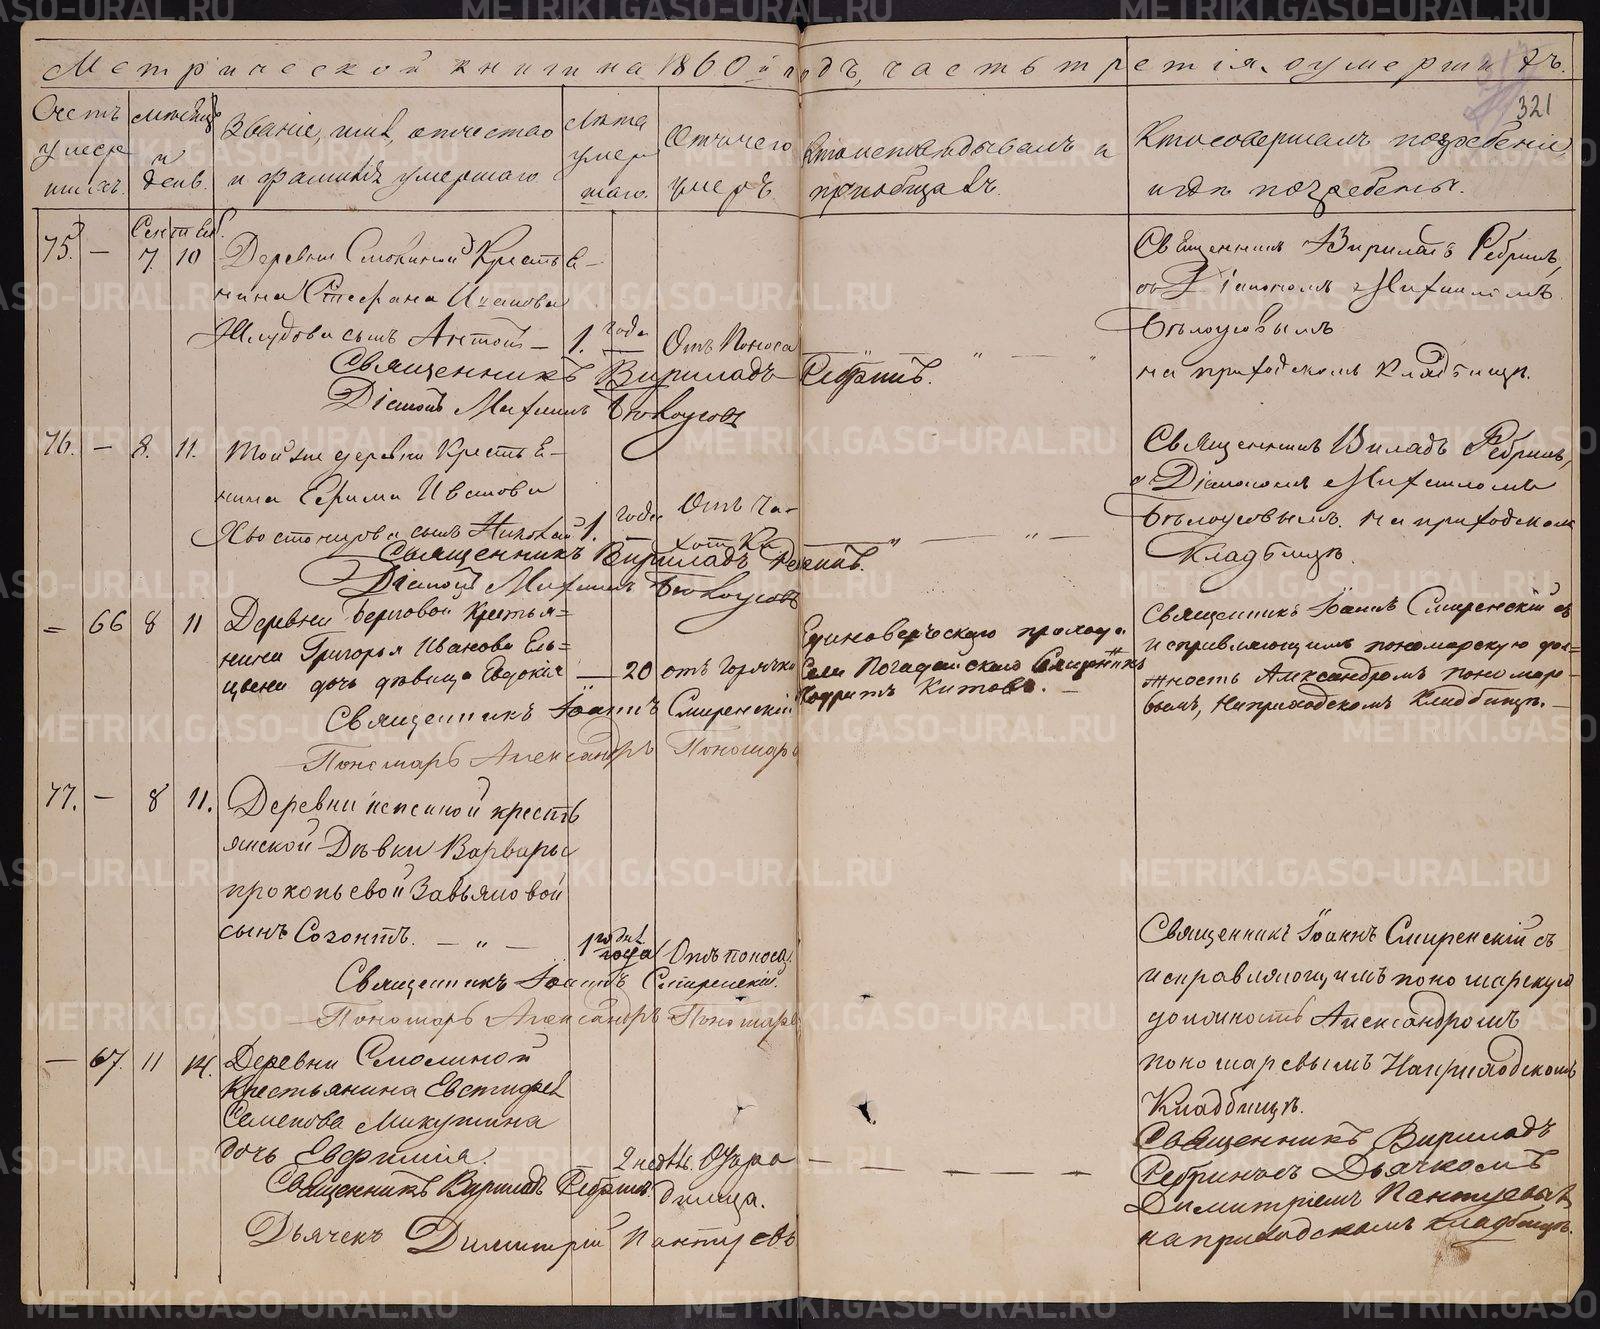 Метрической книги на 1860й годъ, часть третія, о умершихъ.
321
Счетъ умершихъ.
Мѣсяцъ и день.
Званіе, имя, отчество и фамилія умершаго
Лѣта умершаго.
Отъ чего умеръ.
Кто исповѣдывалъ и пріобщалъ.
Кто совершалъ погребеніе и гдѣ погребены.
Сентябь.
75. — 7. 10 Деревни Смолиной Кресть
нина Стефана Иванова
сынъ Антонъ — 1. года Отъ поноса
Священникъ Вириладъ Ребринъ.
Діаконъ Михаилъ Бѣлоусовъ
Священникъ Ребринъ,
съ Діакономъ Михаиломъ
Бѣлоусовымъ
на приходскомъ кладбищѣ.
76. — 8. 11. Той же деревни Кресть
нина Ефима Иванова
Хвостанцова сынъ Николай 1. года Отъ чахотки
Священникъ Вириладъ Ребринъ.
Діаконъ Михаилъ Бѣлоусовъ
Священникъ Ребринъ,
съ Діакономъ Михаиломъ
Бѣлоусовымъ. на приходскомъ
Кладбищѣ.
= 66 8 11 Деревни Береговой крестья=
нина Григорья Иванова Ель=
цына дочь дѣвица Евдокія — 20 отъ горячки
Священникъ Іоаннъ Смиренскій
Пономарь Александръ Пономаревъ
Единовѣрческаго прихода
Села Погадайскаго Священникъ
Китовъ. —
Священникъ Іоаннъ Смиренскій съ
исправляющимъ пономарскую дол=
жность Александромъ Пономаре
вымъ, на приходскомъ кладбищѣ. —
77. — 8 11. Деревни кресть
янской Дѣвки Варвары
прокопьевой Завьяловой
сынъ Созонтъ. — " — 1 года Отъ поноса
Священникъ Іоаннъ Смиренскій.
Пономарь Александръ Пономаревъ
Священникъ Іоаннъ Смиренскій съ
исправляющимъ пономарскую
должность Александромъ
пономаревымъ на приходскомъ
Кладбищѣ.
— 67. 11 14. Деревни Смолиной
Крестьянина Евстифея
Семенова Микушина
дочь Евфимія. 2 недѣл.
Священникъ Вириладъ Ребринъ.
Дьячекъ Димитрій Пантуевъ
Священникъ Вириладъ
Ребринъ съ Дьячкомъ
Димитріемъ Пантуевымъ
на приходскомъ кладбищѣ.
METRIKI.GASO-URAL.RU